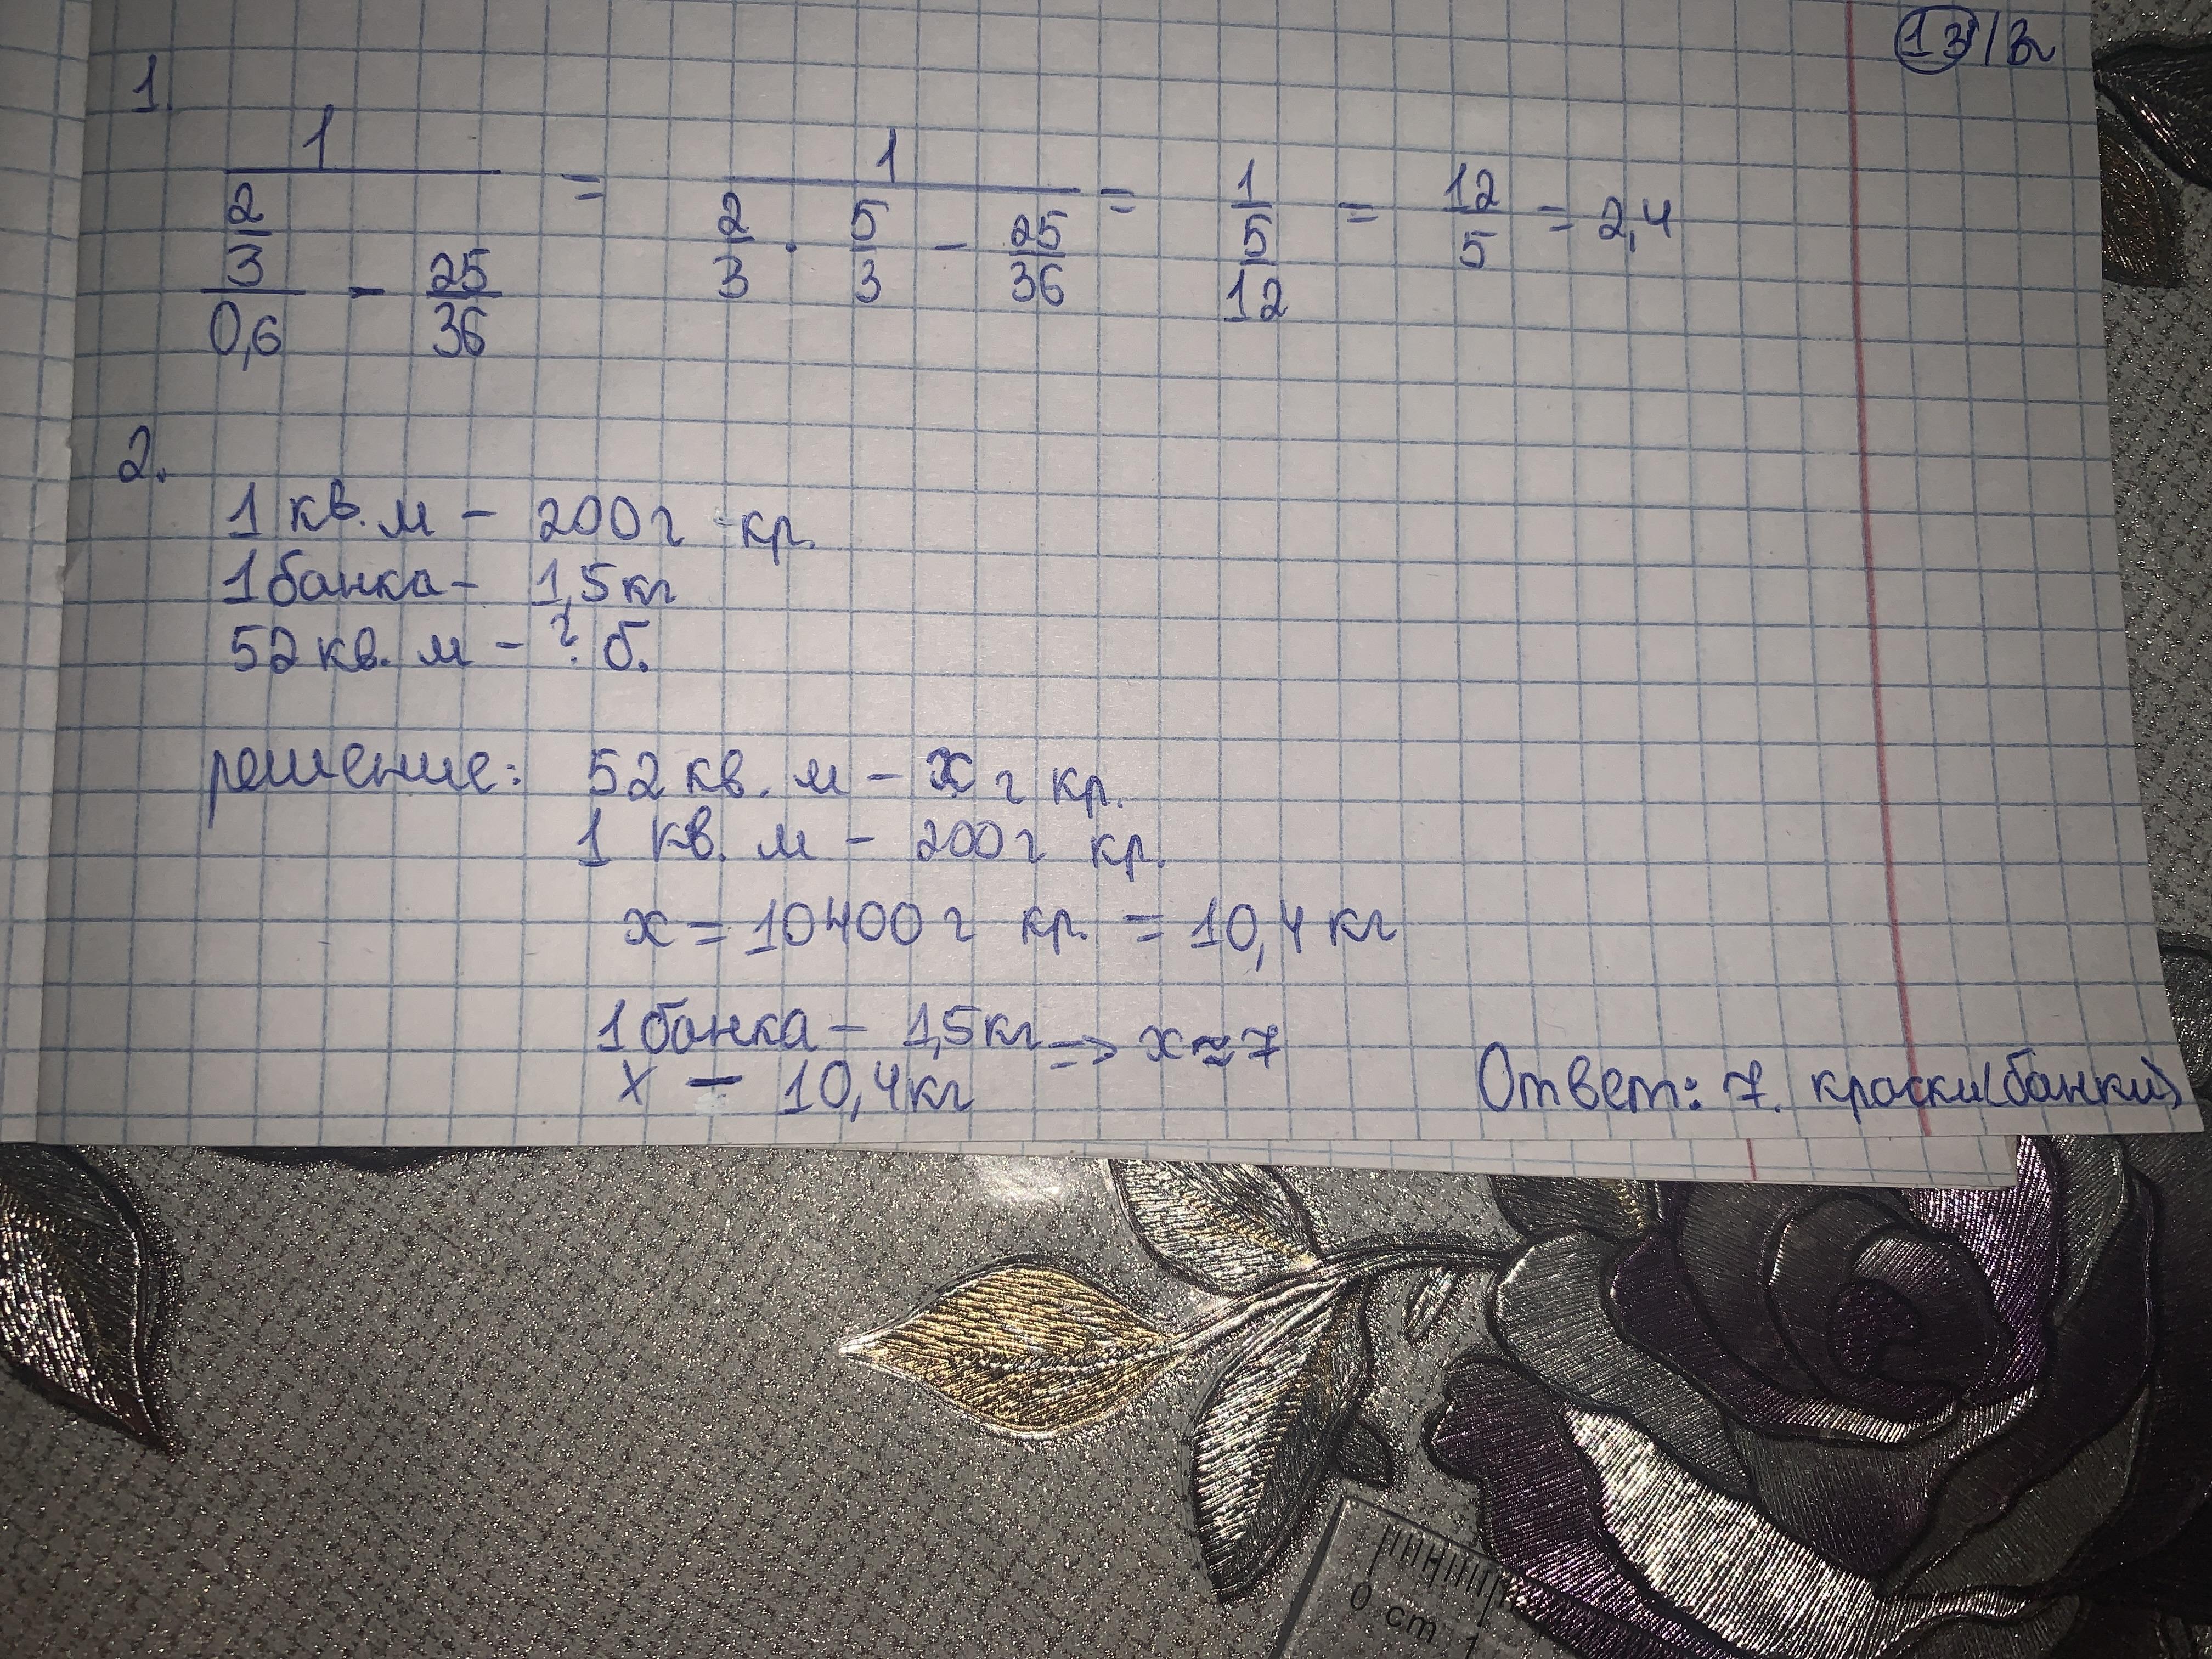 13 / Вг
1.
1 / (2/3 / 0,6 - 25/36) = 1 / (2/3 · 5/3 - 25/36) = 1 / (5/12) = 12/5 = 2,4
2.
1 кв. м - 200 г кр.
1 банка - 1,5 кг
52 кв. м - ? б.
решение: 52 кв. м - x г кр.
1 кв. м - 200 г кр.
x = 10400 г кр. = 10,4 кг
1 банка - 1,5 кг => x ≈ 7
x - 10,4 кг
Ответ: 7. краски(банки)
0 cm 1